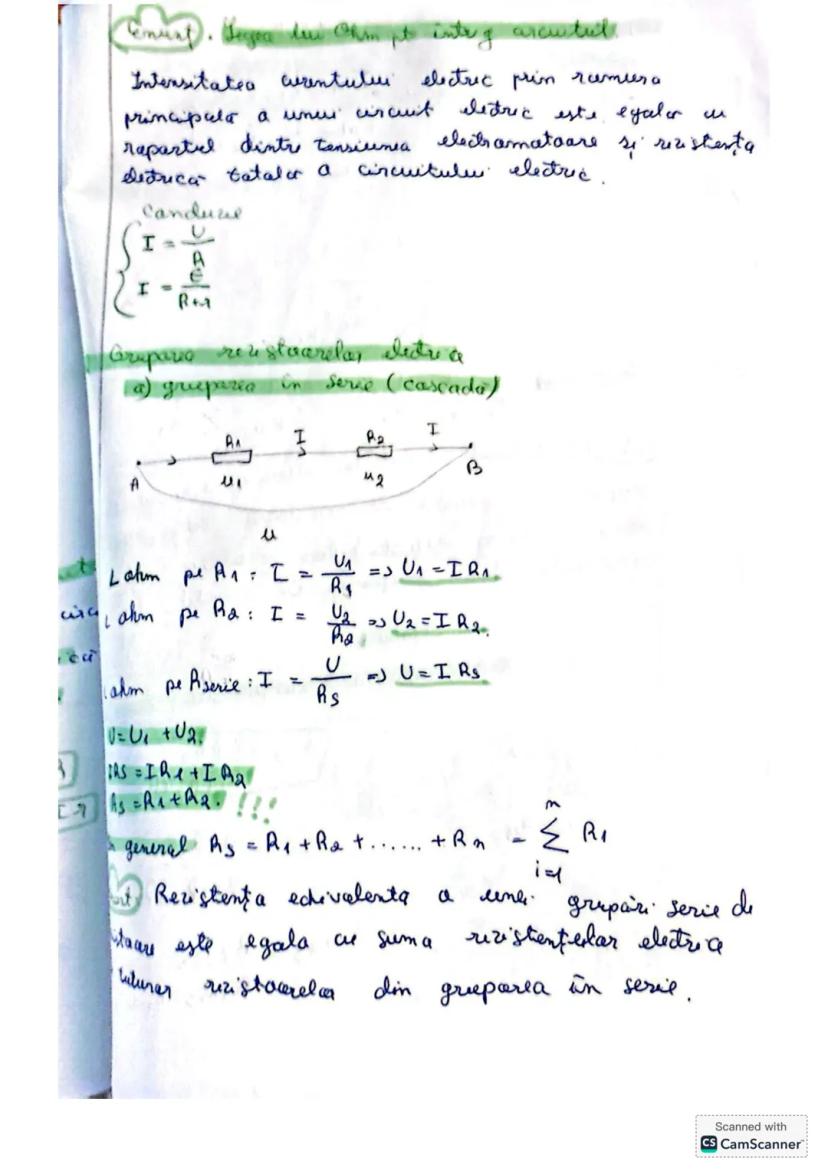 Enunț. Legea lui Ohm pt intreg circuitul.
Intensitatea curentului electric prin ramura
principala a unui circuit electric este egala cu
raportul dintre tensiunea electromotoare și rezistența
electrica totala a circuitului electric.
Concluzie
I = U/R
I = E/R+r
Gruparea rezistoarelor electrice
a) gruparea în serie (cascada)
R1 I R2 I
A u1 u2 B
u
L ohm pe R1 : I = U1/R1 => U1 = I R1.
L ohm pe R2 : I = U2/R2 => U2 = I R2.
ohm pe Rserie : I = U/RS => U = I RS
U = U1 + U2.
IRS = I R1 + I R2
RS = R1 + R2. !!!
general RS = R1 + R2 + ...... + Rn = n Σ i=1 R1
Rezistența echivalenta a unei grupări serie de
este egala cu suma rezistențelor electrice
tuturor rezistoarelor din gruparea în serie.
Scanned with
CS CamScanner